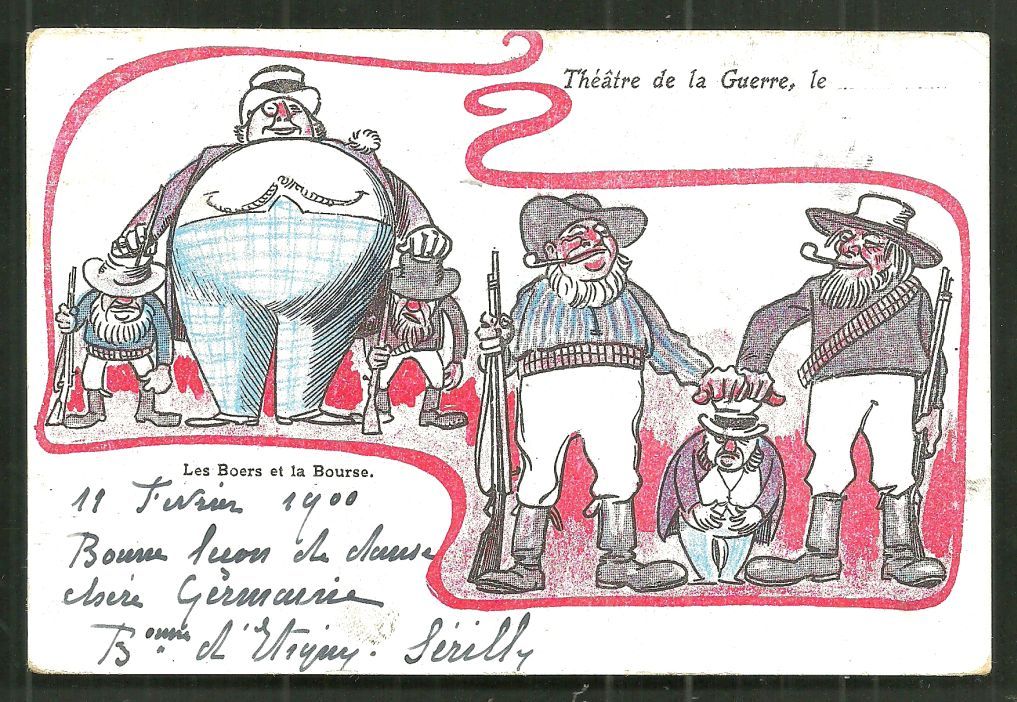 Théâtre de la Guerre, le
Les Boers et la Bourse.
11 Fevrier 1900
Bonne leçon de danse
chère Germaine
Bonne d'Etigny. Sérilly